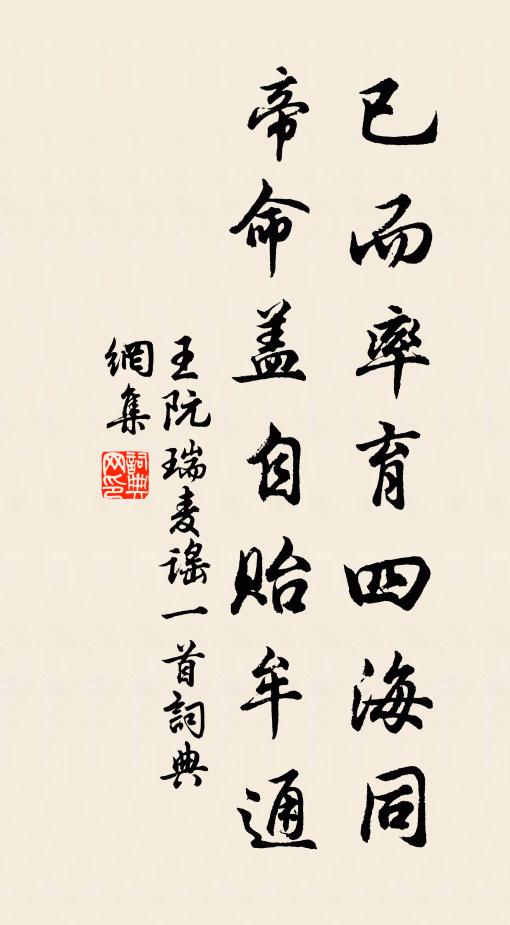 已而率育四海同
帝命盖自貽牟通
王阮瑞麦謠一首詞典
網集
詞典
网印